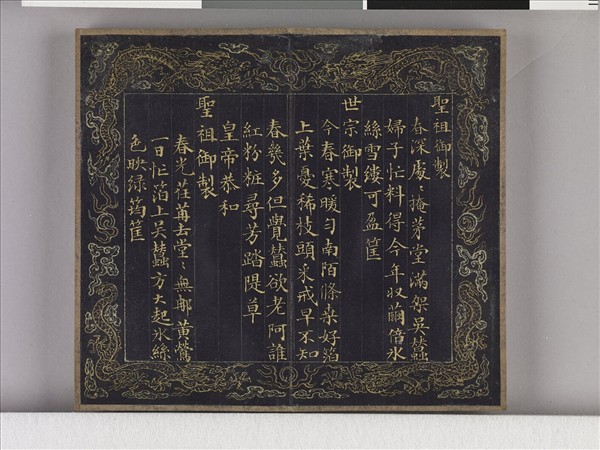 聖祖御製
春深處〻掩茅堂滿架吳蠶
婦子忙料得今年收繭倍氷
絲雪縷可盈筐
世宗御製
今春寒暖勻南陌條桑好箔
上葉憂稀枝頭采戒早不知
春幾多但覺蠶欲老阿誰
紅粉粧尋芳踏隄草
皇帝恭和
聖祖御製
春光荏苒去堂〻無郍黄鶯
一日忙箔上吳蠶方大起氷絲
色映緑筠筐